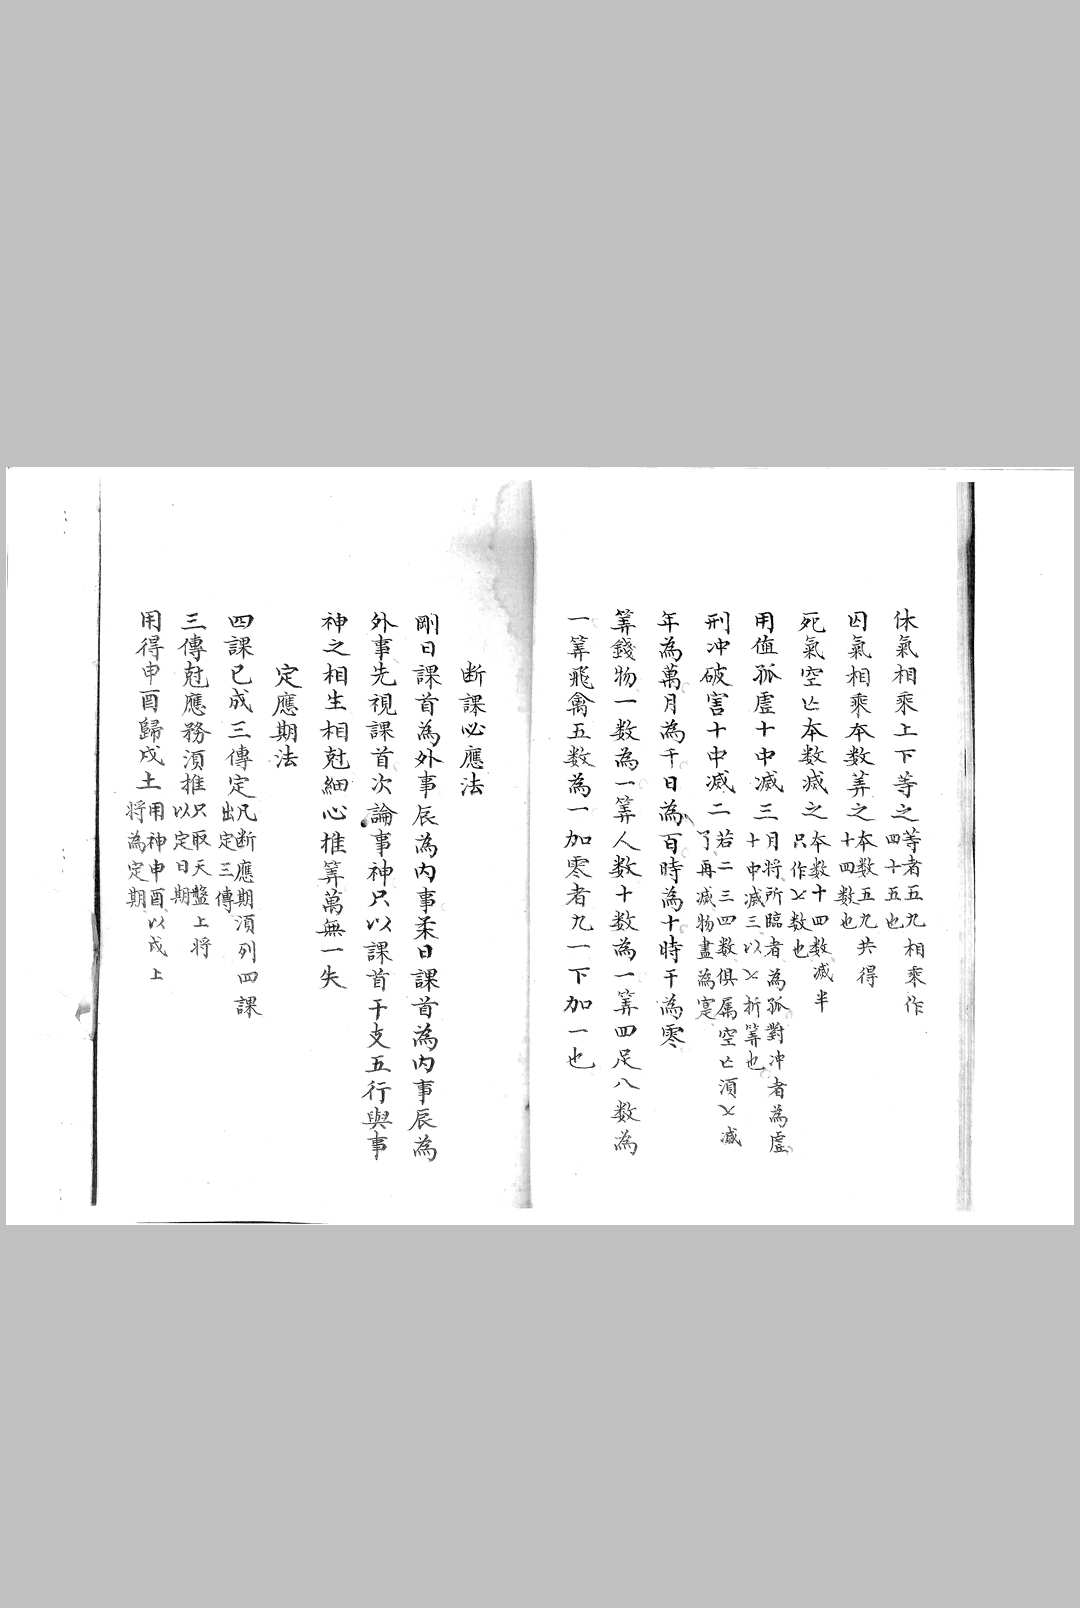 休氣相乘上下等之等者五九相乘作四十五也
囚氣相乘本數筭之本数五九共得十四數也
死氣空亡本数减之本数十四数减半只作七数也
用值孤虛十中减三月将所臨者為孤對冲者為虛十中减三以七折筭也
刑冲破害十中减二若二三四数俱属空亡湏七减了再减物盡為寔
年為萬月為千日為百時為十時干為零
筭錢物一数為一筭人数十数為一筭四足八数為
一筭飛禽五数為一加零者九一下加一也
断課必應法
剛日課首為外事辰為内事柔日課首為内事辰為
外事先視課首次論事神只以課首干支五行與事
神之相生相尅細心推筭萬無一失
定應期法
四課已成三傳定凡断應期湏列四課出定三傳
三傳尅應務湏推只取天盤上将以定日期
用得申酉歸戍土用神申酉以戍上将為定期